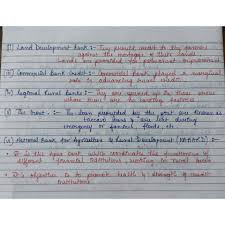 (i) Land Development Bank :- They provide credit to the farmers
against the mortgage of their lands.
Loans are provided for permanent improvement
(ii) Commercial Bank Credit :- Commercial Bank played a marginal
role in advancing rural credit.
(iii) Regional Rural Banks :- They are opened up in those areas
where there are no banking facilities
The loan provided by the are known as
loans & are lent during
emergency or famines, floods, etc
National Bank for Agriculture & Rural Development (NABARD) :-
It is the apex bank which coordinate the functioning of
different financial institutions, working in rural areas.
It's objective is to promote health & strength of credit
institutions